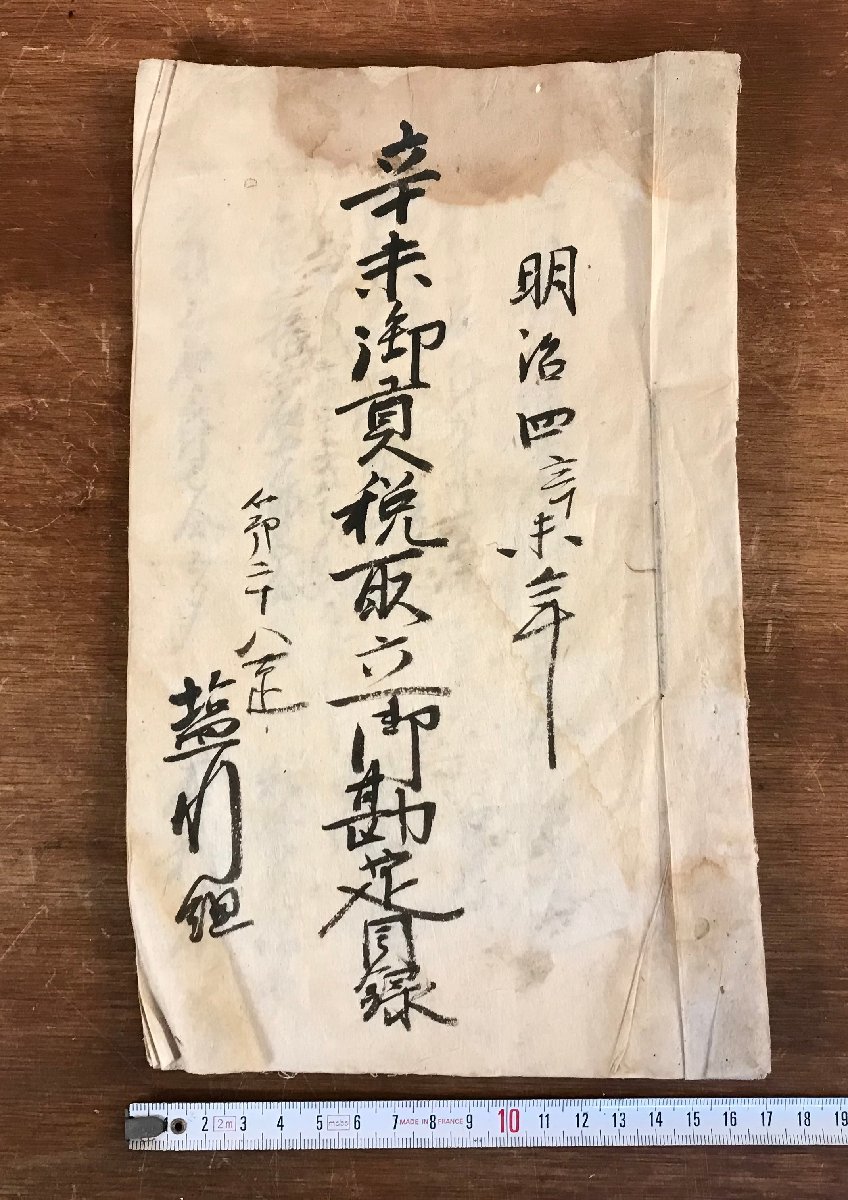 明治四辛未年
辛未御貢税取立御勘定目録
第二十八定
塩川組
2 2m 3 4 5 mabo 6 7 MADE IN 8 FRANCE 9 10 11 12 13 14 15 16 17 18 19